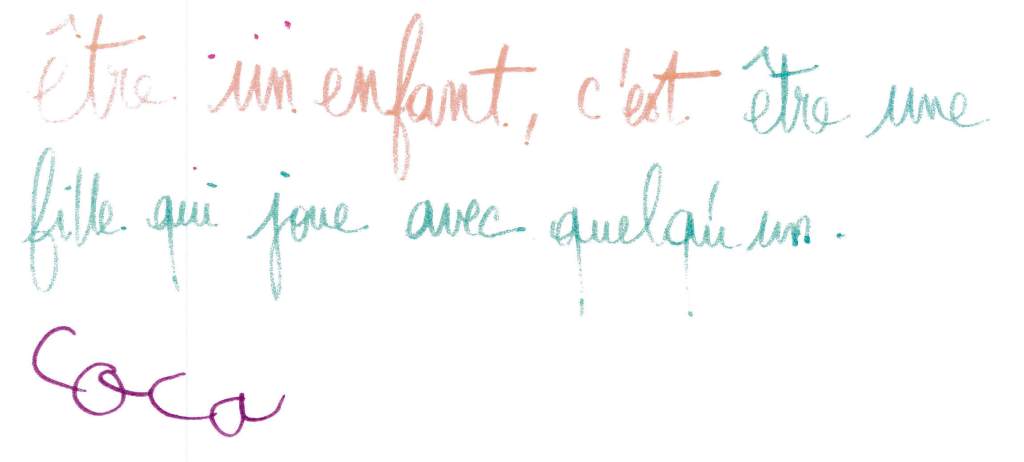 être un enfant, c'est être une
fille qui joue avec quelqu'un.
Coca